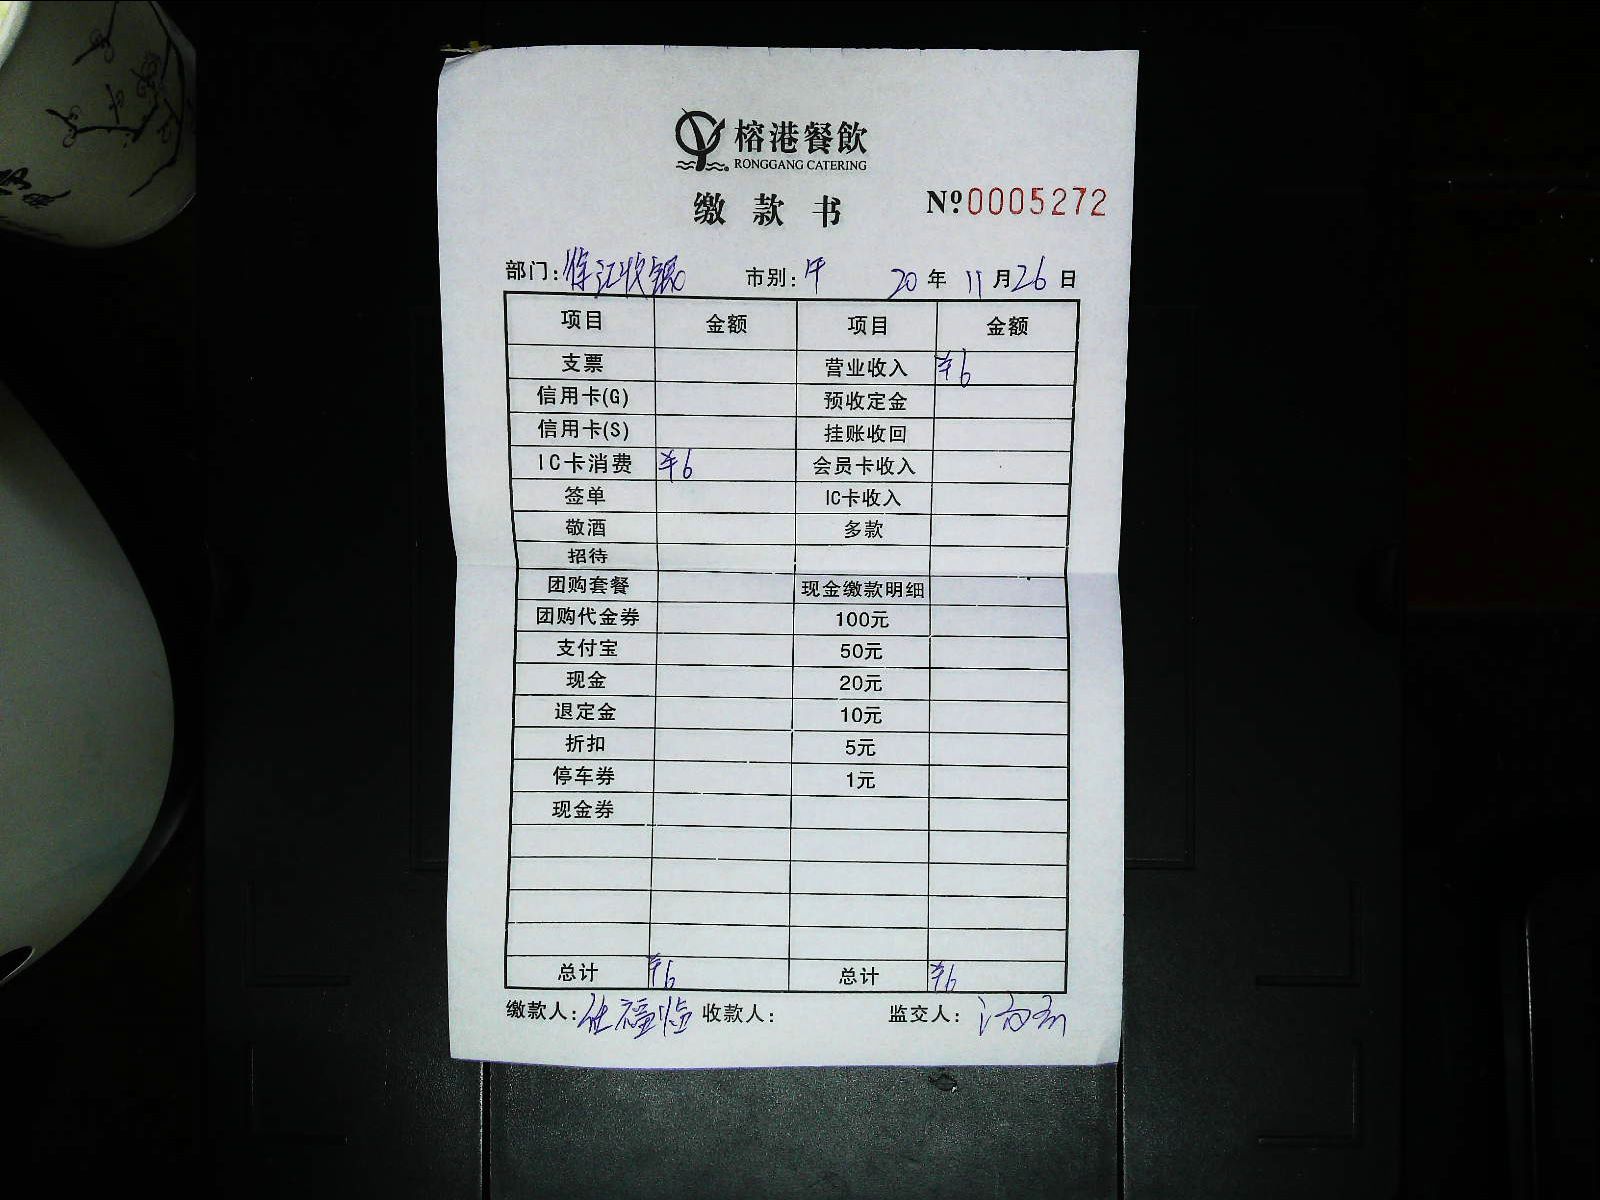 榕港餐飲
RONGGANG CATERING
缴款书 Nº0005272
部门: 江收银 市别:午 20年11月26日
项目 金额 项目 金额
支票 营业收入 ¥6
信用卡(G) 预收定金
信用卡(S) 挂账收回
IC卡消费 ¥6 会员卡收入
签单 IC卡收入
敬酒 多款
招待
团购套餐 现金缴款明细
团购代金券 100元
支付宝 50元
现金 20元
退定金 10元
折扣 5元
停车券 1元
现金券
总计 ¥6 总计 ¥6
缴款人: 福临 收款人: 监交人: